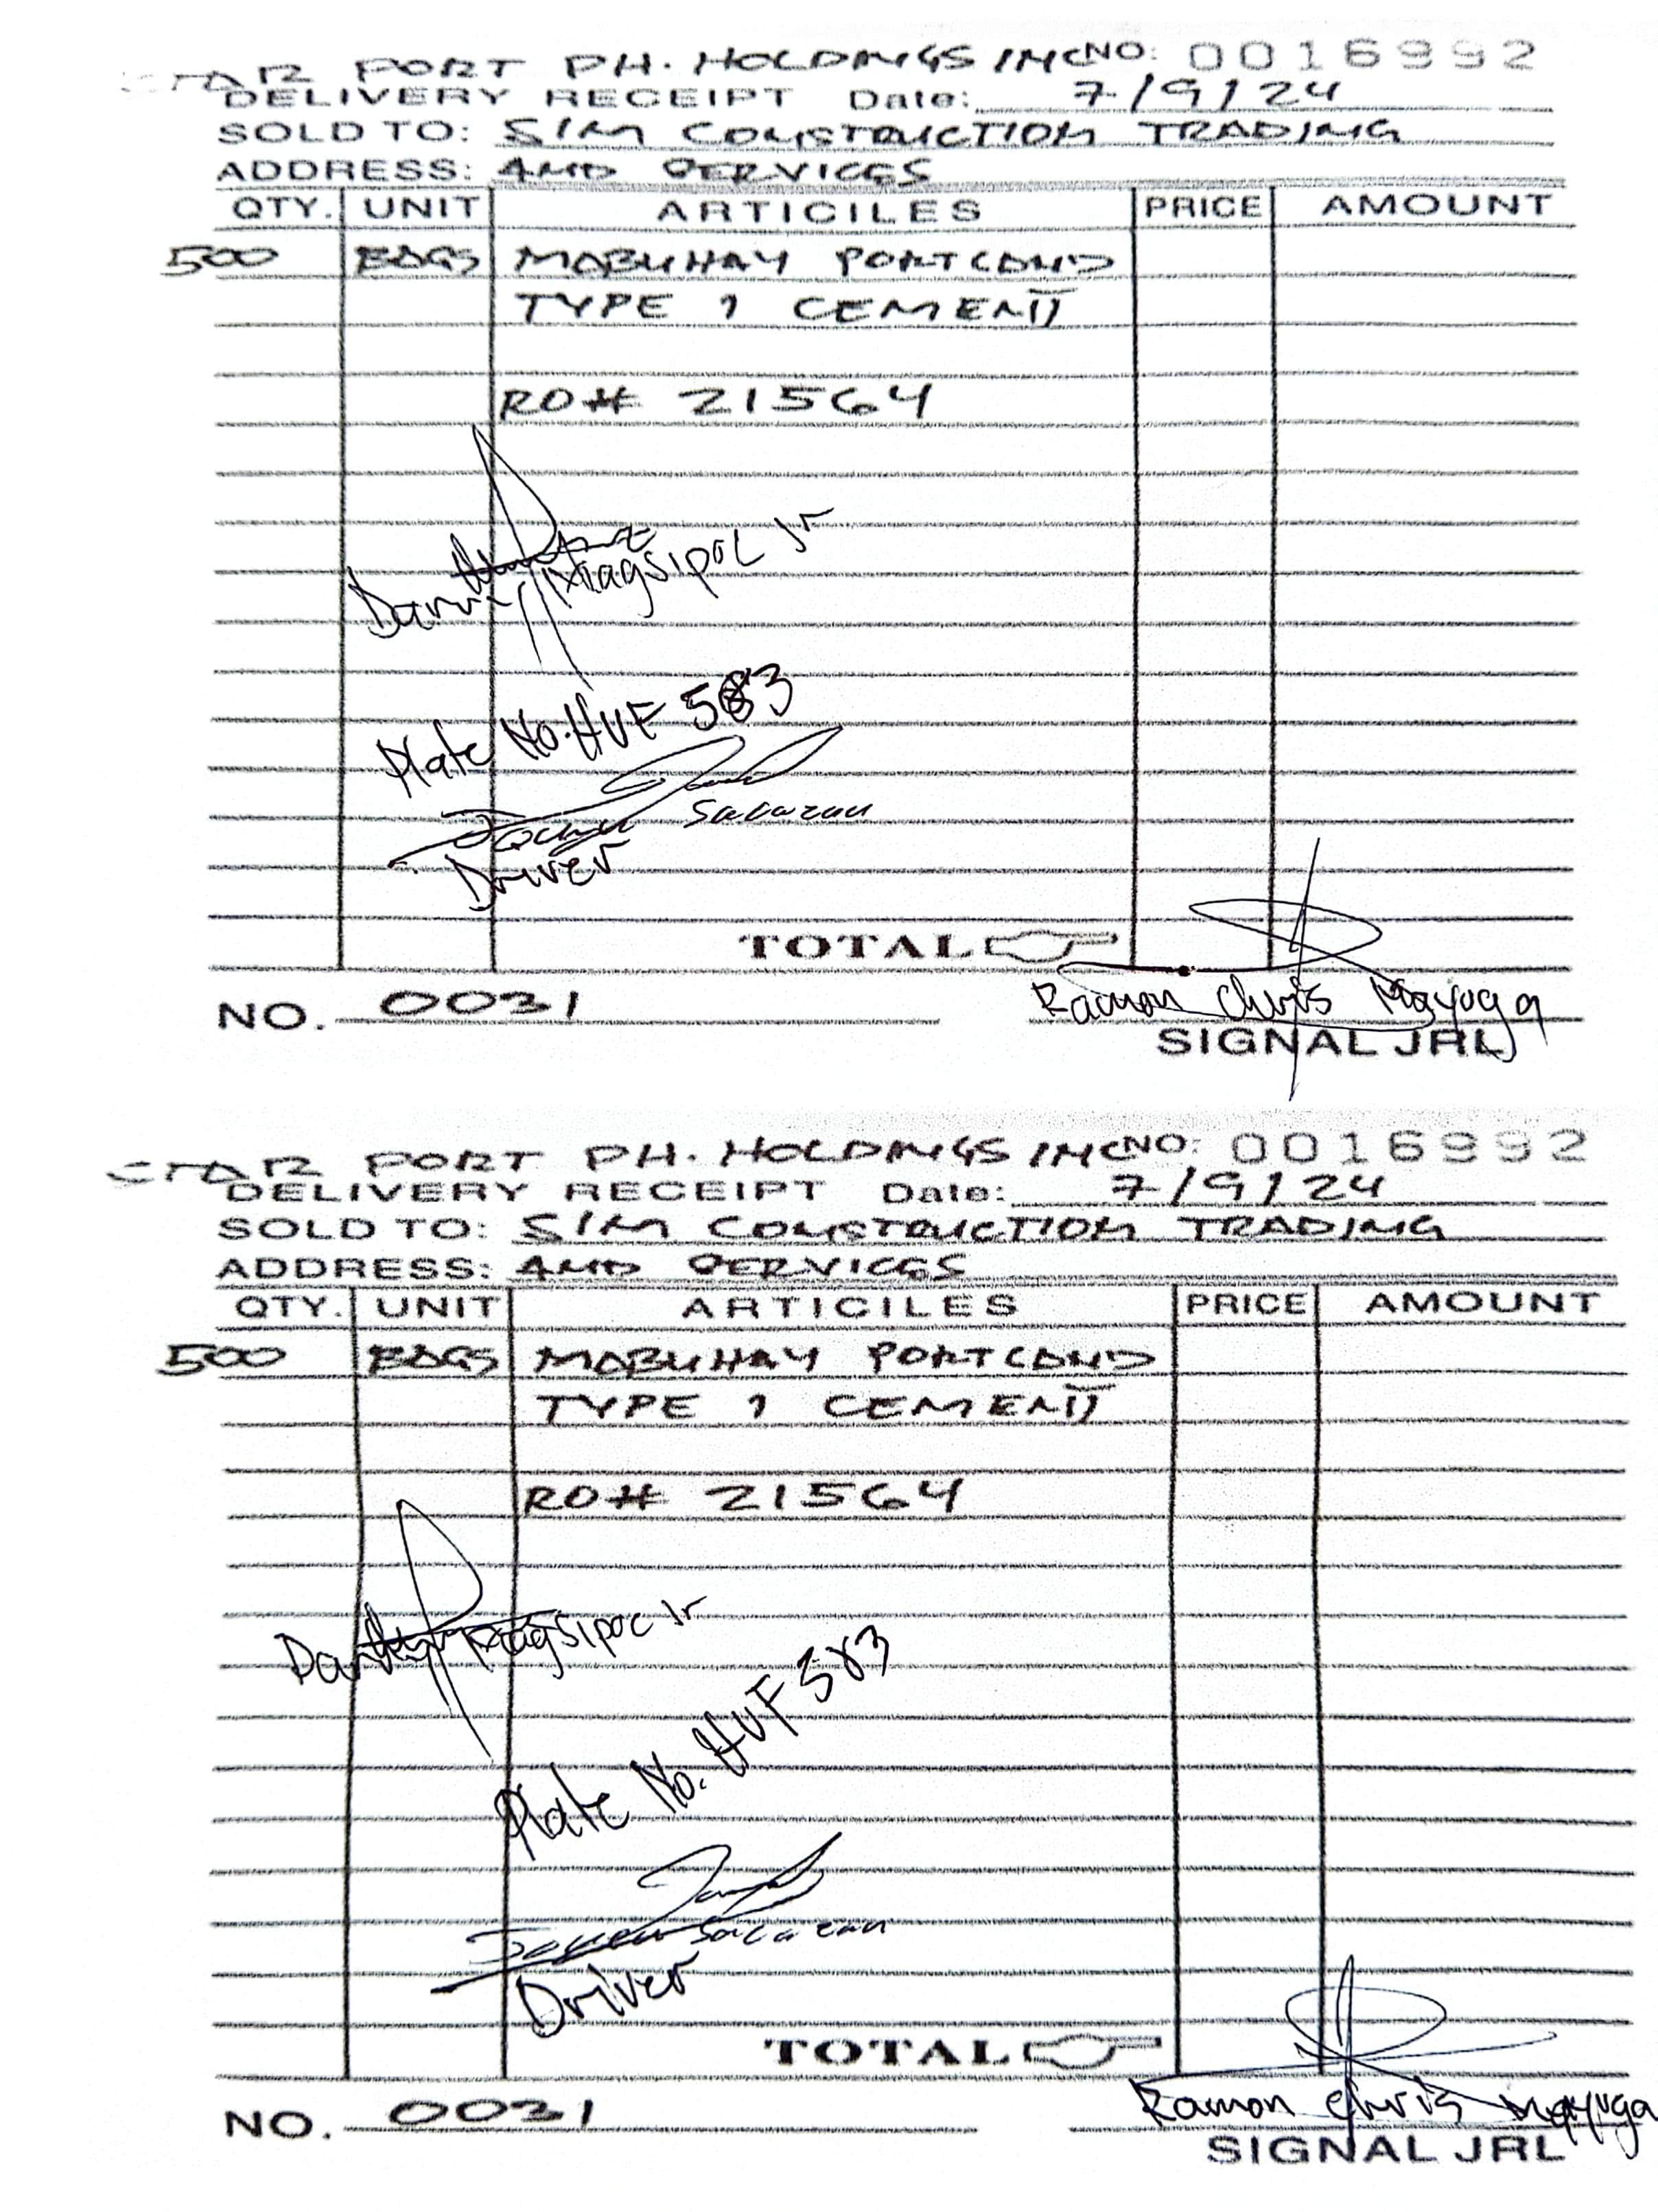 STAR PORT PH. HOLDINGS INC NO: 0016992
DELIVERY RECEIPT Date: 7/9/24
SOLD TO: SIM CONSTRUCTION TRADING
ADDRESS: AND SERVICES
QTY. UNIT ARTICILES PRICE AMOUNT
500 BAGS MABUHAY PORTLAND
TYPE 1 CEMENT
RO# 21564
Magsipoc Jr
Plate No. HUF 583
Sacazan
Driver
TOTAL
NO. 0031
Ramon Chris Mayuga
SIGNAL JRL
STAR PORT PH. HOLDINGS INC NO: 0016992
DELIVERY RECEIPT Date: 7/9/24
SOLD TO: SIM CONSTRUCTION TRADING
ADDRESS: AND SERVICES
QTY. UNIT ARTICILES PRICE AMOUNT
500 BAGS MABUHAY PORTLAND
TYPE 1 CEMENT
RO# 21564
Magsipoc Jr
Plate No. HUF 583
Sacazan
Driver
TOTAL
NO. 0031
Ramon Chris Mayuga
SIGNAL JRL